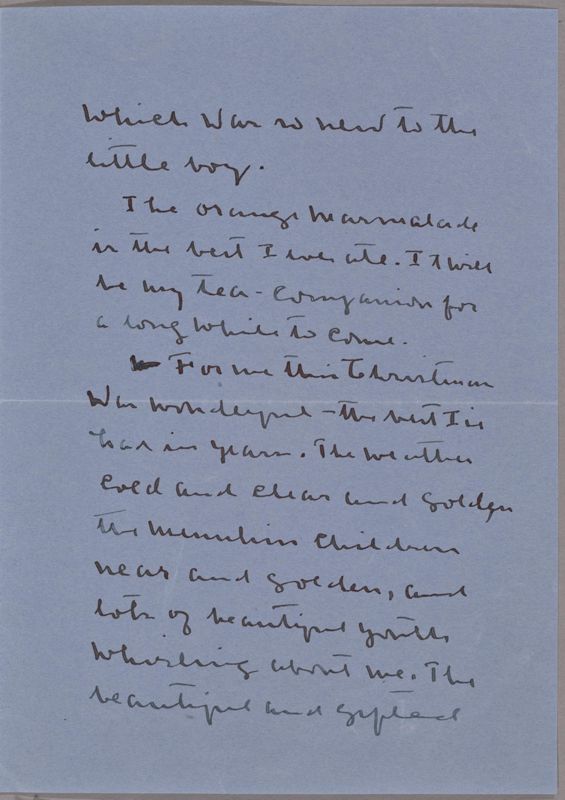 which was so new to the
little boy.
The orange marmalade
is the best I ever ate. It will
be my tea-companion for
a long while to come.
For me this Christmas
was wonderful - the best I'd
had in years. The weather
cold and clear and golden
the Menuhin children
near and golden, and
lots of beautiful youth
whirling about me. The
beautiful and gifted